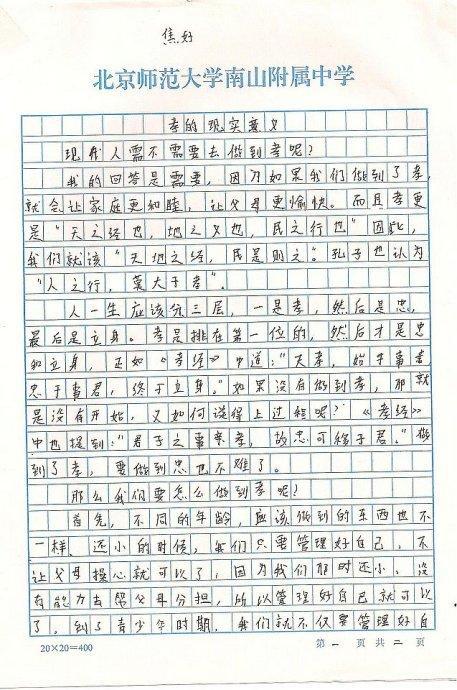 焦好
北京师范大学南山附属中学
孝的现实意义
现代人需不需要去做到孝呢？
我的回答是需要，因为如果我们做到了孝，
就会让家庭更和睦，让父母更愉快。而且孝更
是“天之经也，地之义也，民之行也”因此，
我们就该“天地之经，民是则之”。孔子也认为
“人之行，莫大于孝”。
人一生应该分三层，一是孝，然后是忠，
最后是立身。孝是排在第一位的，然后才是忠
和立身，正如《孝经》中道：“夫孝，始于事亲，
忠于事君，终于立身。”如果没有做到孝，那就
是没有开始，又如何谈得上过程呢？《孝经》
中也提到：“君子之事亲孝，故忠可移于君。”做
到了孝，要做到忠也不难了。
那么我们要怎么做到孝呢？
首先，不同的年龄，应该做到的东西也不
一样、还小的时候，我们只要管理好自己，不
让父母操心就可以了，因为我们那时还小，没
有能力去帮父母分担，所以管理好自己就可以
了。到了青少年时期，我们就不仅要管理好自
20×20=400
第一页共二页